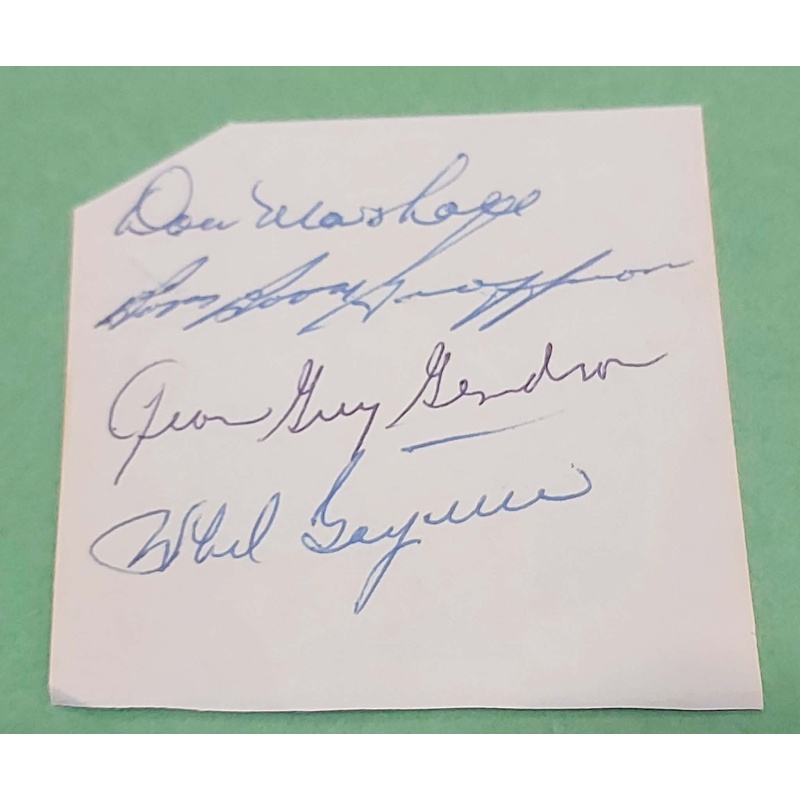 Don Marshall
Boom Boom Geoffrion
Jean Guy Gendron
Phil Goyette